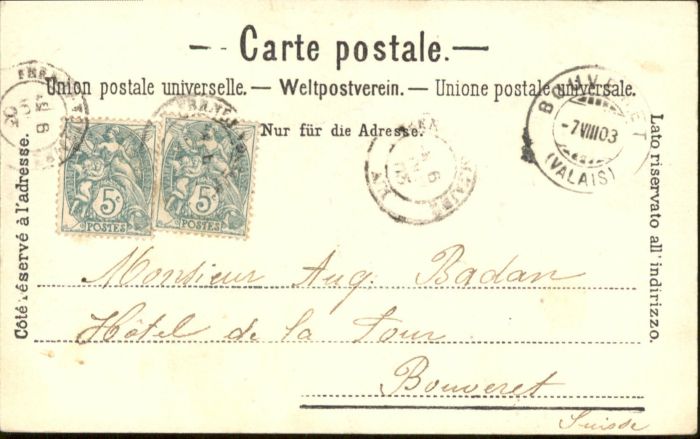 — Carte postale. —
Union postale universelle. — Weltpostverein. — Unione postale universale.
Nur für die Adresse.
Côté réservé à l'adresse.
Lato riservato all' indirizzo.
5c
POSTES
5c
POSTES
BOUVERET
-7 VIII 03
(VALAIS)
Monsieur Aug. Badan
Hôtel de la Tour
Bouveret
Suisse